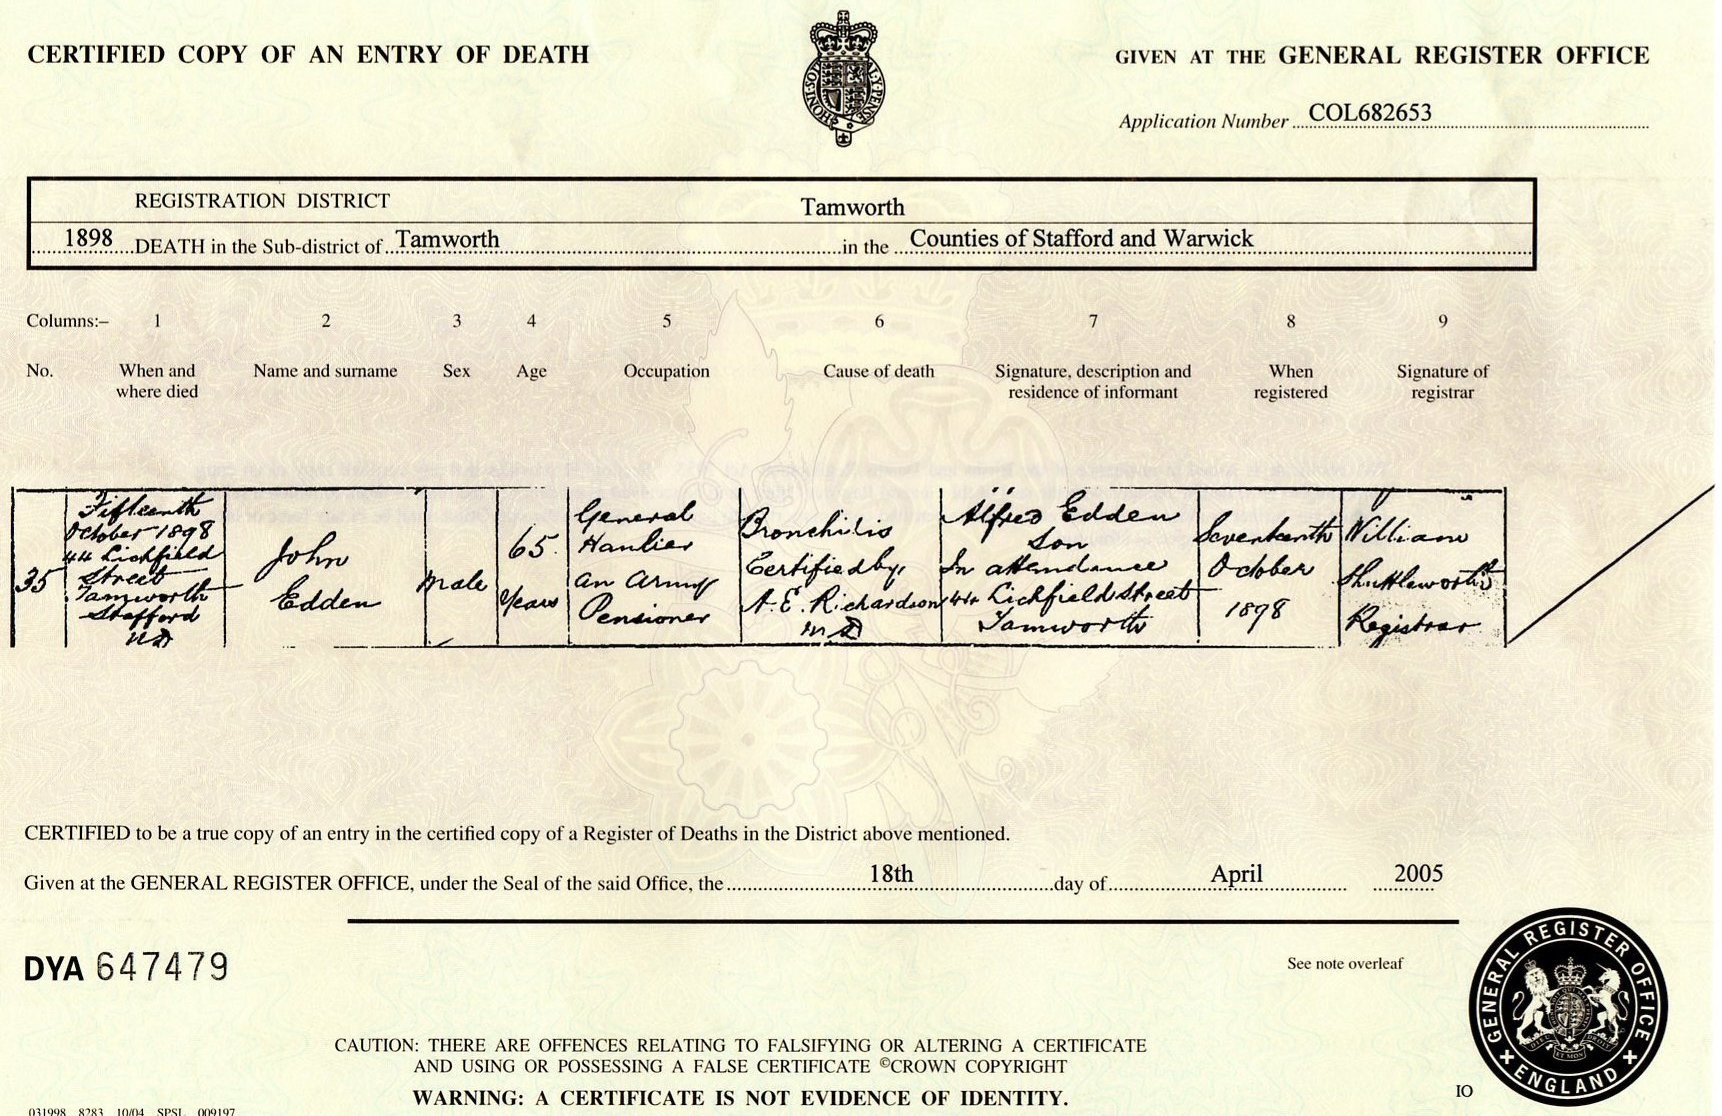 CERTIFIED COPY OF AN ENTRY OF DEATH
GIVEN AT THE GENERAL REGISTER OFFICE
Application Number COL682653
REGISTRATION DISTRICT Tamworth
1898 DEATH in the Sub-district of Tamworth in the Counties of Stafford and Warwick
Columns:– 1 2 3 4 5 6 7 8 9
No. When and where died
Name and surname
Sex
Age
Occupation
Cause of death
Signature, description and residence of informant
When registered
Signature of registrar
35
Fifteenth
October 1898
44 Lichfield
Street
Tamworth
Stafford
John
Edden
Male
65
Years
General
Haulier
an Army
Pensioner
Bronchitis
Certified by
A. E. Richardson
MD
Alfred Edden
Son
In attendance
44 Lichfield Street
Tamworth
Seventeenth
October
1898
William
Shuttleworth
Registrar
CERTIFIED to be a true copy of an entry in the certified copy of a Register of Deaths in the District above mentioned.
Given at the GENERAL REGISTER OFFICE, under the Seal of the said Office, the 18th day of April 2005
DYA 647479
See note overleaf
GENERAL REGISTER OFFICE
ENGLAND
CAUTION: THERE ARE OFFENCES RELATING TO FALSIFYING OR ALTERING A CERTIFICATE
AND USING OR POSSESSING A FALSE CERTIFICATE ©CROWN COPYRIGHT
WARNING: A CERTIFICATE IS NOT EVIDENCE OF IDENTITY.
IO
031998 8283 10/04 SPSL 009197